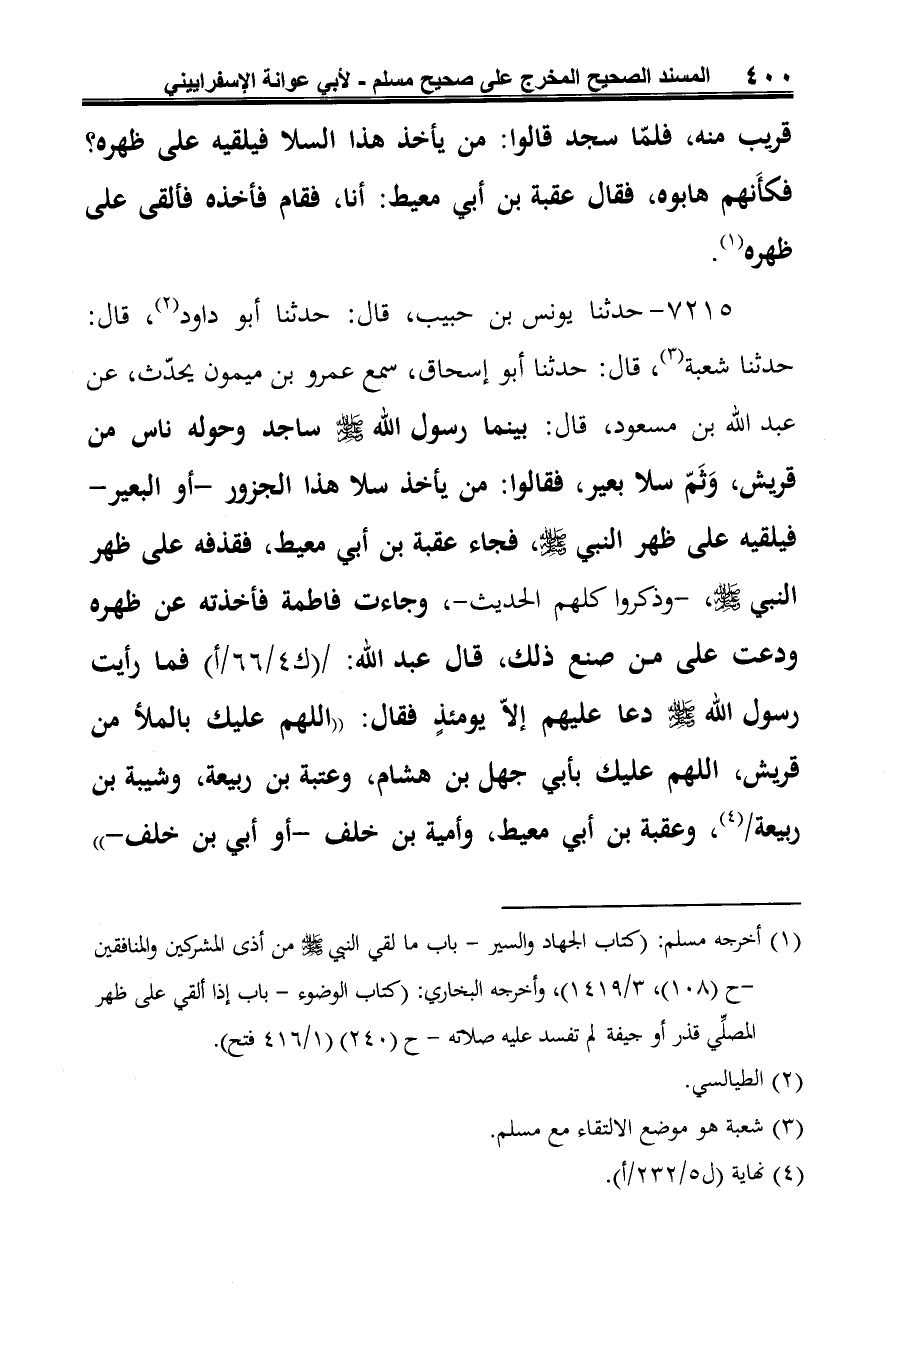 ٤٠٠ المسند الصحيح المخرج على صحيح مسلم - لأبي عوانة الإسفراييني
قريب منه، فلمّا سجد قالوا: من يأخذ هذا السلا فيلقيه على ظهره؟
فكأَنهم هابوه، فقال عقبة بن أبي معيط: أنا، فقام فأخذه فألقى على
ظهره(١).
٧٢١٥- حدثنا يونس بن حبيب، قال: حدثنا أبو داود(٢)، قال:
حدثنا شعبة(٣)، قال: حدثنا أبو إسحاق، سمع عمرو بن ميمون يحدّث، عن
عبد الله بن مسعود، قال: بينما رسول الله ﷺ ساجد وحوله ناس من
قريش، وَثَمّ سلا بعير، فقالوا: من يأخذ سلا هذا الجزور -أو البعير-
فيلقيه على ظهر النبي ﷺ، فجاء عقبة بن أبي معيط، فقذفه على ظهر
النبي ﷺ، -وذكروا كلهم الحديث-، وجاءت فاطمة فأخذته عن ظهره
ودعت على من صنع ذلك، قال عبد الله: /(ك٤/٦٦/أ) فما رأيت
رسول الله ﷺ دعا عليهم إلاّ يومئذٍ فقال: ((اللهم عليك بالملأ من
قريش، اللهم عليك بأبي جهل بن هشام، وعتبة بن ربيعة، وشيبة بن
ربيعة/(٤)، وعقبة بن أبي معيط، وأمية بن خلف -أو أبي بن خلف-))
(١) أخرجه مسلم: (كتاب الجهاد والسير - باب ما لقي النبي ﷺ من أذى المشركين والمنافقين
-ح (١٠٨)، ١٤١٩/٣)، وأخرجه البخاري: (كتاب الوضوء - باب إذا ألقي على ظهر
المصلِّي قذر أو جيفة لم تفسد عليه صلاته - ح (٢٤٠) (٤١٦/١ فتح).
(٢) الطيالسي.
(٣) شعبة هو موضع الالتقاء مع مسلم.
(٤) نهاية (ل٢٣٢/٥/أ).